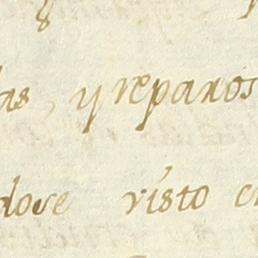 as, y reparos
dose visto e